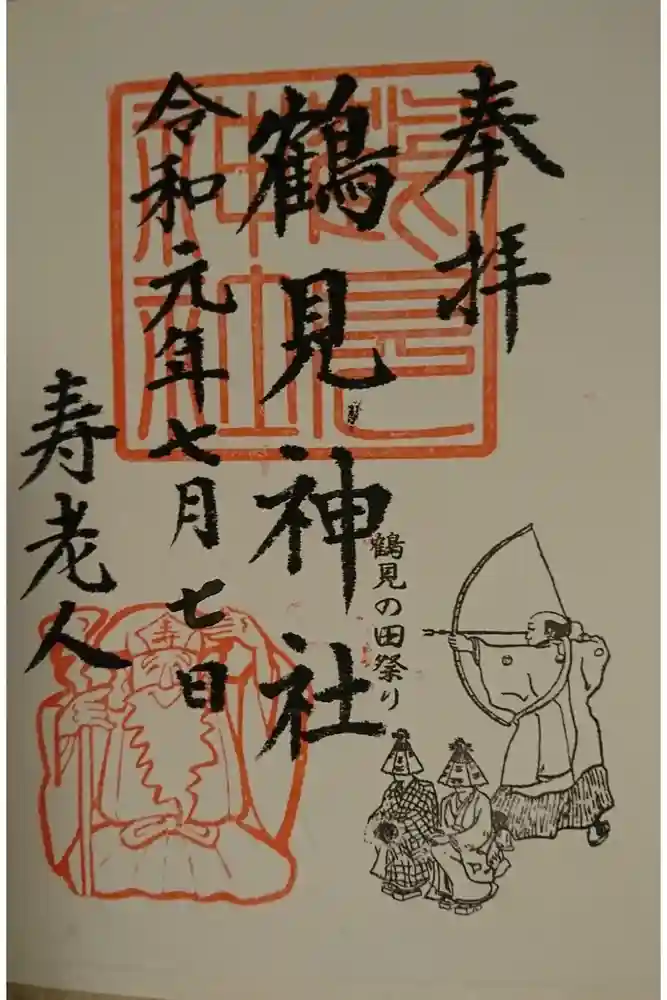 奉拝
鶴見神社
鶴見の田祭り
令和元年七月七日
寿老人
鶴見神社
寿